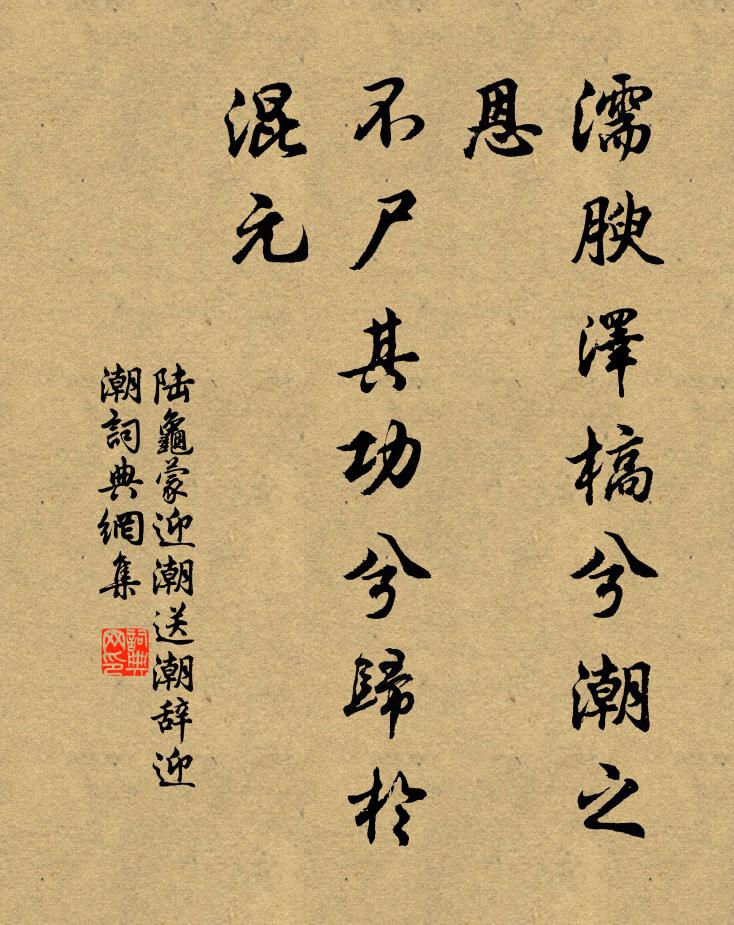 濡腴澤槁兮潮之
恩
不尸其功兮歸於
混元
陆龜蒙迎潮送潮辞迎
潮詞典網集
詞典网印